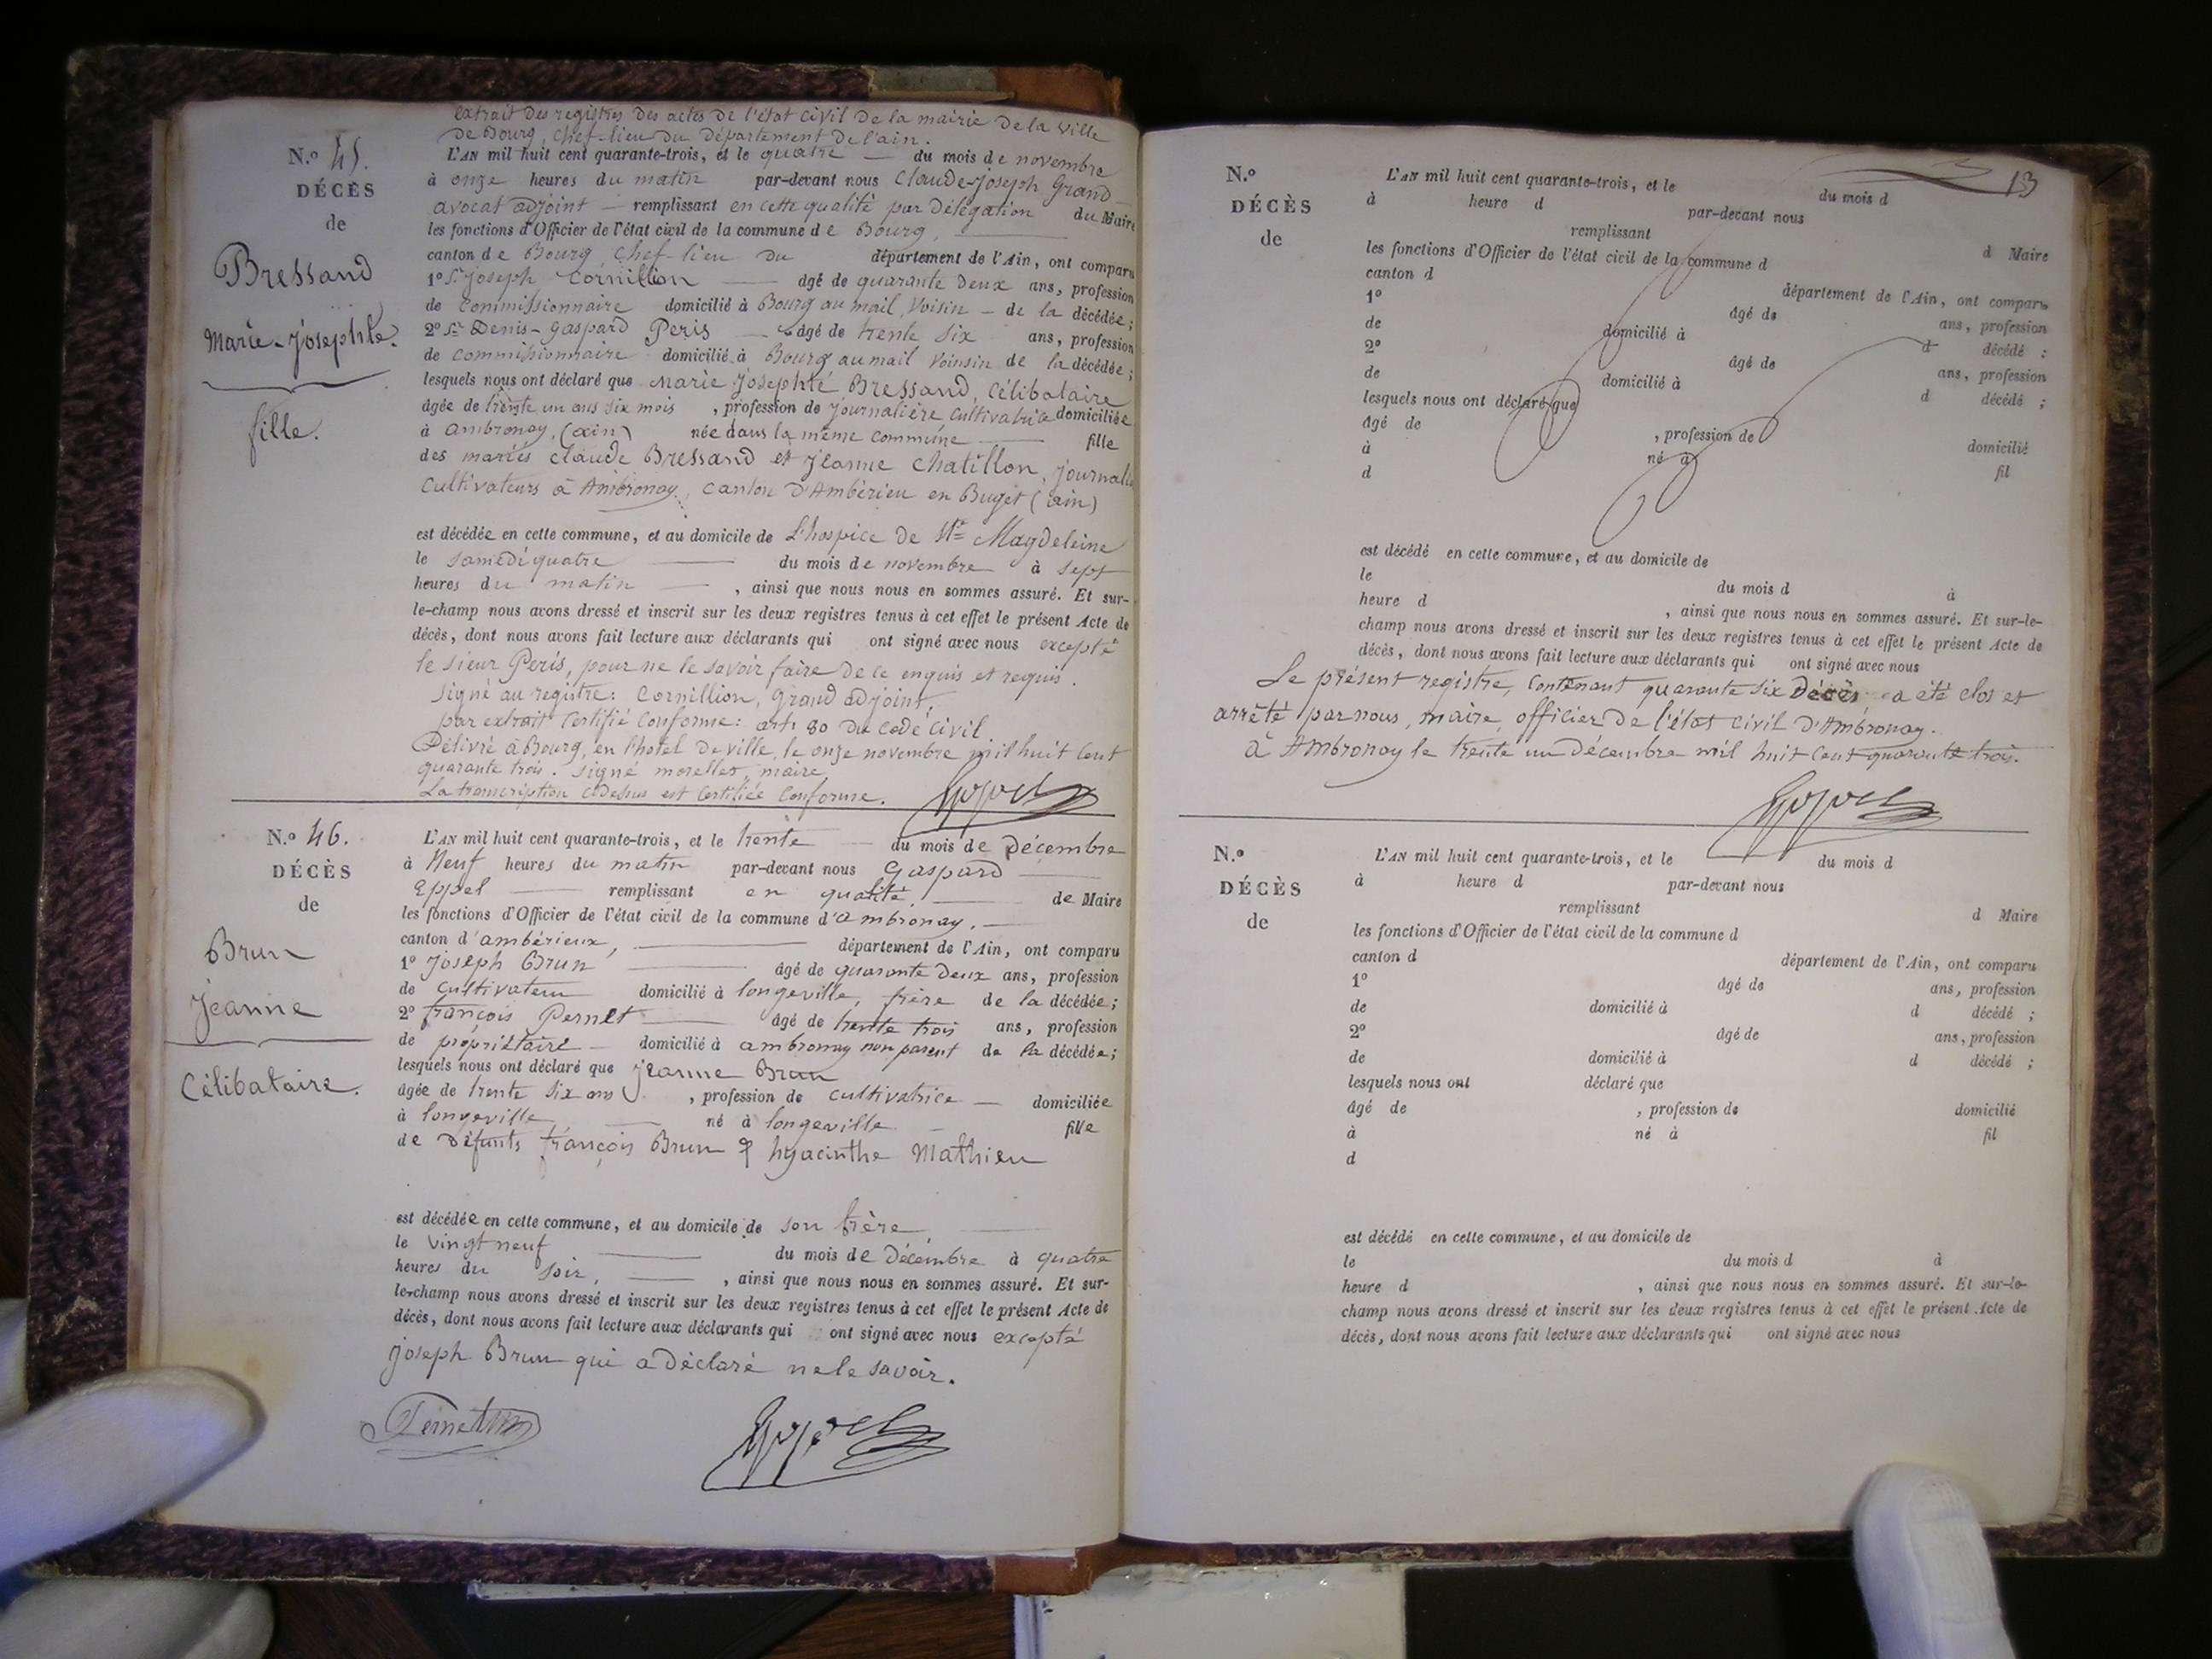 extrait des registres des actes de l'état civil de la mairie de la ville
de Bourg, chef-lieu du département de l'ain.
N.º 45.
DÉCÈS
de
Bressand
Marie-Josephte.
fille.
L'AN mil huit cent quarante-trois, et le quatre du mois de novembre
à onze heures du matin par-devant nous Claude-Joseph Grand
avocat adjoint remplissant en cette qualité par délégation du Maire
les fonctions d'Officier de l'état civil de la commune de Bourg,
canton de Bourg, chef-lieu du département de l'Ain, ont comparu
1º Sr. Joseph Cornillion âgé de quarante deux ans, profession
de commissionnaire domicilié à Bourg au mail, voisin de la décédée ;
2º Sr Denis-Gaspard Peris âgé de trente six ans, profession
de commissionnaire domicilié à Bourg au mail voinsin de la décédée ;
lesquels nous ont déclaré que Marie Josephte Bressand, célibataire
âgée de trente un ans six mois , profession de journalière cultivatrice domiciliée
à Ambronay, (ain) née dans la même commune fille
des mariés Claude Bressand et Jeanne Chatillon, journali
cultivateurs à Ambronay, canton d'Ambérieu en Bugey (ain)
est décédée en cette commune, et au domicile de L'hospice de Ste Magdeleine
le samedi quatre du mois de novembre à sept
heures du matin , ainsi que nous nous en sommes assuré. Et sur-
le-champ nous avons dressé et inscrit sur les deux registres tenus à cet effet le présent Acte de
décès, dont nous avons fait lecture aux déclarants qui ont signé avec nous excepté
le sieur Peris, pour ne le savoir faire de ce enquis et requis.
signé au registre : Cornillion, Grand adjoint,
par extrait certifié conforme : art. 80 du code civil.
Délivré à Bourg, en l'hôtel de ville, le onze novembre mil huit cent
quarante trois. signé morellet, maire
La transcription ci-dessus est certifiée conforme.
N.º 46.
DÉCÈS
de
Brun
Jeanne
Célibataire.
L'AN mil huit cent quarante-trois, et le trente du mois de Décembre
à Neuf heures du matin par-devant nous Gaspard
appel remplissant en qualité de Maire
les fonctions d'Officier de l'état civil de la commune d'ambronay.
canton d'ambérieux, département de l'Ain, ont comparu
1º Joseph Brun âgé de quarante deux ans, profession
de cultivateur domicilié à longeville, frère de la décédée ;
2º françois Pernet âgé de trente trois ans, profession
de propriétaire domicilié à ambronay non parent de la décédée ;
lesquels nous ont déclaré que Jeanne Brun
âgée de trente six ans , profession de cultivatrice domiciliée
à longeville né à longeville fille
de défunts françois Brun & hyacinthe Mathieu
est décédée en cette commune, et au domicile de son frère
le vingt neuf du mois de Décembre à quatre
heures du soir, , ainsi que nous nous en sommes assuré. Et sur-
le-champ nous avons dressé et inscrit sur les deux registres tenus à cet effet le présent Acte de
décès, dont nous avons fait lecture aux déclarants qui ont signé avec nous excepté
joseph Brun qui a déclaré ne le savoir.
Pernet
13
N.º
DÉCÈS
de
L'AN mil huit cent quarante-trois, et le du mois d
à heure d par-devant nous
remplissant d Maire
les fonctions d'Officier de l'état civil de la commune d
canton d département de l'Ain, ont comparu
1º âgé de ans, profession
de domicilié à d décédé ;
2º âgé de ans, profession
de domicilié à d décédé ;
lesquels nous ont déclaré que
âgé de , profession de domicilié
à né à fil
d
est décédé en cette commune, et au domicile de
le du mois d à
heure d , ainsi que nous nous en sommes assuré. Et sur-le-
champ nous avons dressé et inscrit sur les deux registres tenus à cet effet le présent Acte de
décès, dont nous avons fait lecture aux déclarants qui ont signé avec nous
Le présent registre, contenant quarante six Décès a été clos et
arrêté par nous, maire, officier de l'état civil d'Ambronay.
à Ambronay le trente un décembre mil huit cent quarante trois.
N.º
DÉCÈS
de
L'AN mil huit cent quarante-trois, et le du mois d
à heure d par-devant nous
remplissant d Maire
les fonctions d'Officier de l'état civil de la commune d
canton d département de l'Ain, ont comparu
1º âgé de ans, profession
de domicilié à d décédé ;
2º âgé de ans, profession
de domicilié à d décédé ;
lesquels nous ont déclaré que
âgé de , profession de domicilié
à né à fil
d
est décédé en cette commune, et au domicile de
le du mois d à
heure d , ainsi que nous nous en sommes assuré. Et sur-le-
champ nous avons dressé et inscrit sur les deux registres tenus à cet effet le présent Acte de
décès, dont nous avons fait lecture aux déclarants qui ont signé avec nous